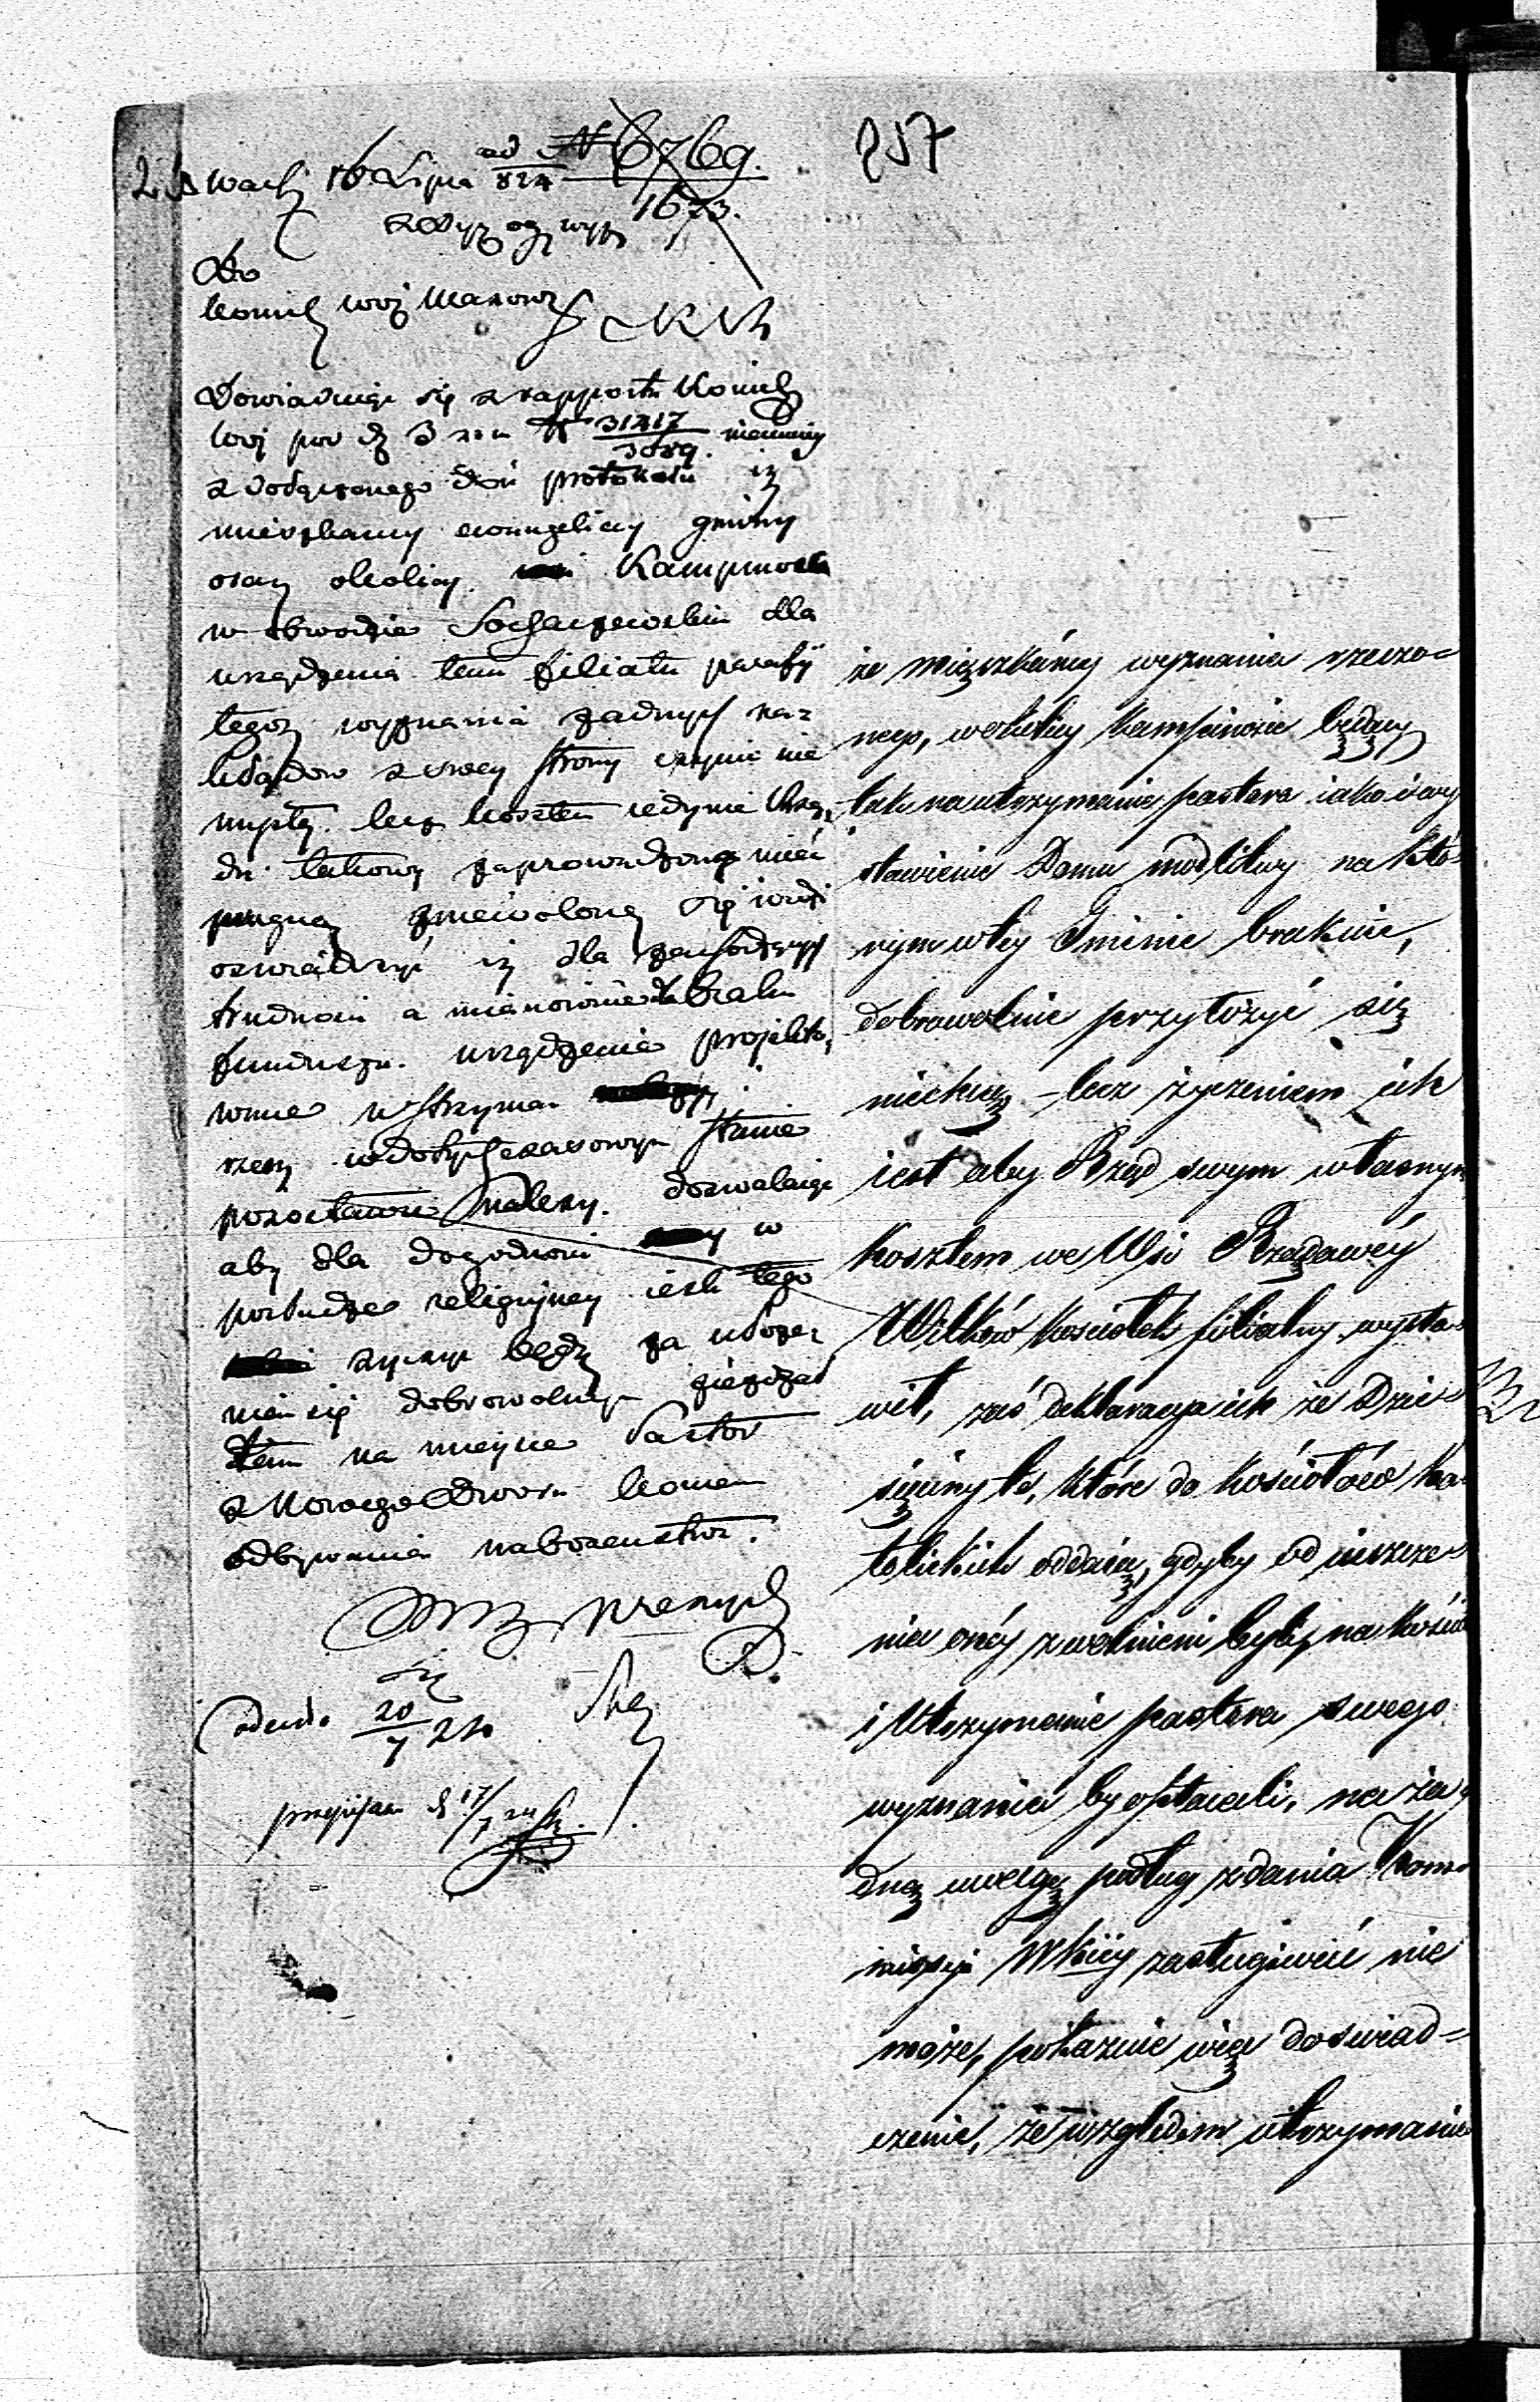 257
w Warsz 16 Lipca 824 ad N 6769.
1673.
Do
Komis Woj Mazow
Dowiaduiąc się z rapportu Komis
Woj pod d 3 N 31417
3089. niemniey
z dołączonego doń protokołu iż
mieszkańcy ewangeliccy gminy
oraz okolicy Kampinosa
w obwodzie Sochaczewskim dla
urządzenia tem filiału parafii
tegoż wyznania żadnych na=
kładów z swey strony czynić nie
myślą. lecz kosztem iedynie Rzą=
du takowy zaprowadzony mieć
pragną zniewoloną się widzi
oświadczyć iż dla zachodzących
trudności a mianowicie dla braku
funduszu. urządzenie projekto=
wane wstrzymać
rzeczy w dotychczasowym stanie
pozostawić należy. dozwalaiąc
aby dla dogodności w
posłudze religijney iesli tego
życzyć będą za ułoże=
niem się dobrowolnym zieżdżał
tam na mieysce Pastor
z Nowego Dworu koncem
odbywania nabożeństwa.
20
7 24
przepisan d 17/7 24
że mięszkańcy wyznania rzeczo=
nego, w okolicy Kampinosie będący
tak na utrzymanie pastora iako i wy
stawienie Domu modlitwy na któ=
rym w tey Gminie brakuie,
dobrowolnie przyłożyć się
niechcą – lecz życzeniem ich
iest aby Rząd swym własnym
kosztem we Wsi Rządowéy
Wilków kościołek filialny wysta=
wił, zaś deklaracya ich że Dzie=
sięciny te, które do kościołów ka=
tolickich oddaią, gdyby od uiszcze=
nia onéy zwolnieni byli, na kościół
i Utrzymanie pastora swego
wyznania by opłacali, na ża=
dną uwagę podług zdania Kom=
missyi Wkiéy zasługiwać nie
może, pokazuie więc doświad=
czenie, że względem utrzymania